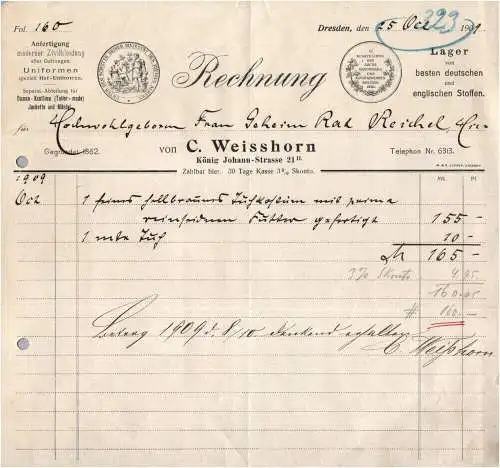 Fol. 160
Dresden, den 25 Oct 1909.
323
Anfertigung
moderner Zivilkleidung
aller Gattungen.
Uniformen
Separat-Abteilung für
Damen-Kostüme (Tailor-made)
Jacketts und Mäntel.
Rechnung
Lager
von
besten deutschen
und
englischen Stoffen.
für Hochwohlgeborn Frau Geheim Rat Reichel, Hier
Gegründet 1862.
von C. Weisshorn
Telephon Nr. 6313.
König Johann-Strasse 21 II.
Zahlbar hier. 30 Tage Kasse 3% Skonto.
1909
Oct 1 feines hellbraunes Tuchkostüm mit prima
reinseidenen Futter gefertigt 155 -
1 mtr Tuch 10 -
M 165 -
3% Skonto 4.95
160.05
# 160.-
Betrag 1909 d. 8/10 dankend erhalten
C. Weißhorn